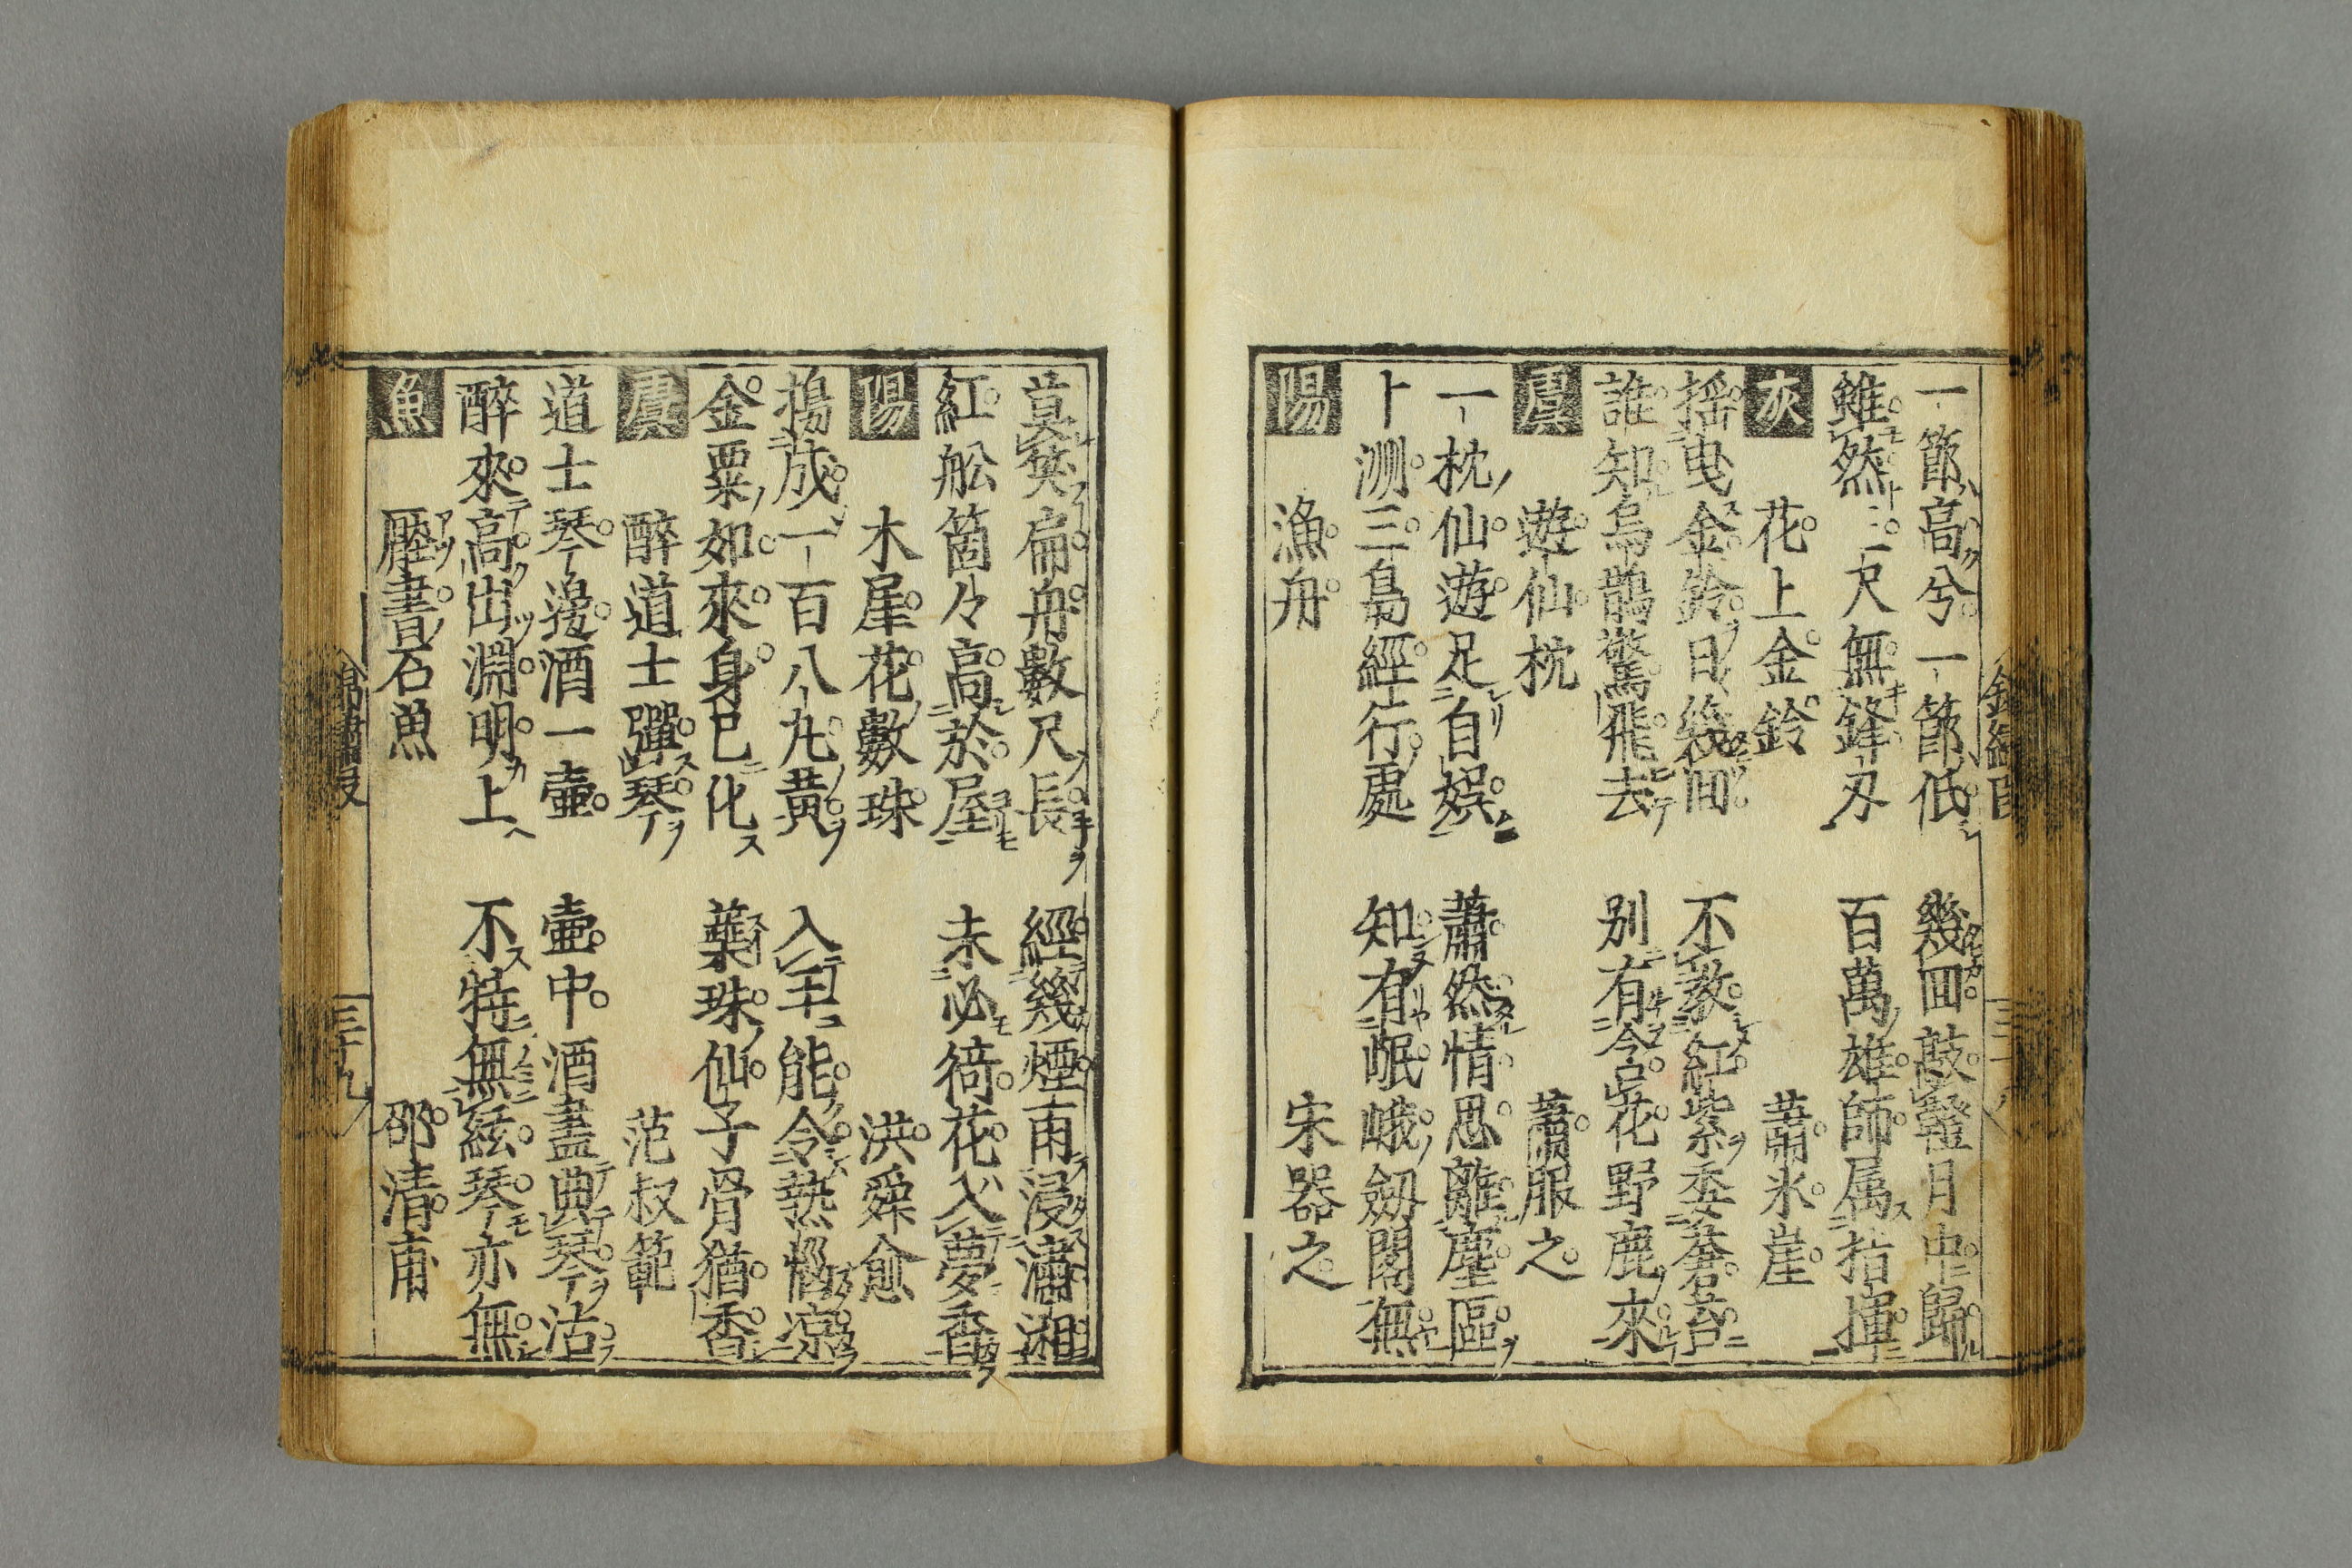 一節高兮一節低 幾回敲鐙月中歸
雖然三尺無鋒刃 百萬雄師属指揮
灰 花上金鈴 蕭氷崖
揺曳金鈴日幾回 不教紅紫委蒼苔
誰知烏鵲驚飛去 別有含花野鹿來
虞 遊仙枕 蕭服之
一枕仙遊足自娯 蕭然情思離塵區
十洲三島經行處 知有岷峨劔閣無
陽 漁舟 宋器之
莫笑扁舟數尺長 經幾煙雨浸瀟湘
紅舩箇々高於屋 未必徛花入夢香
陽 木犀花數珠 洪舜愈
搗成一百八丸黄 入手能令熱惱凉
金粟如來身已化 蘂珠仙子骨猶香
虞 醉道士彈琴 范叔範
道士琴邊酒一壷 壷中酒盡典琴沽
醉來高出淵明上 不特無絃琴亦無
魚 壓書石魚 邵清甫
三十九